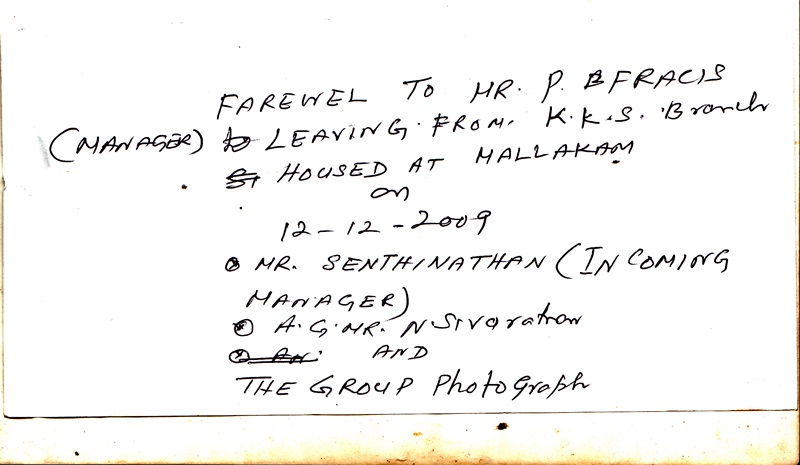 FAREWEL TO MR. P. FRACIS
(MANAGER) LEAVING FROM. K.K.S. Branch
HOUSED AT MALLAKAM
on
12-12-2009
MR. SENTHINATHAN (IN COMING
MANAGER)
A.G.MR. N Sivaratnam
AND
THE GROUP Photograph